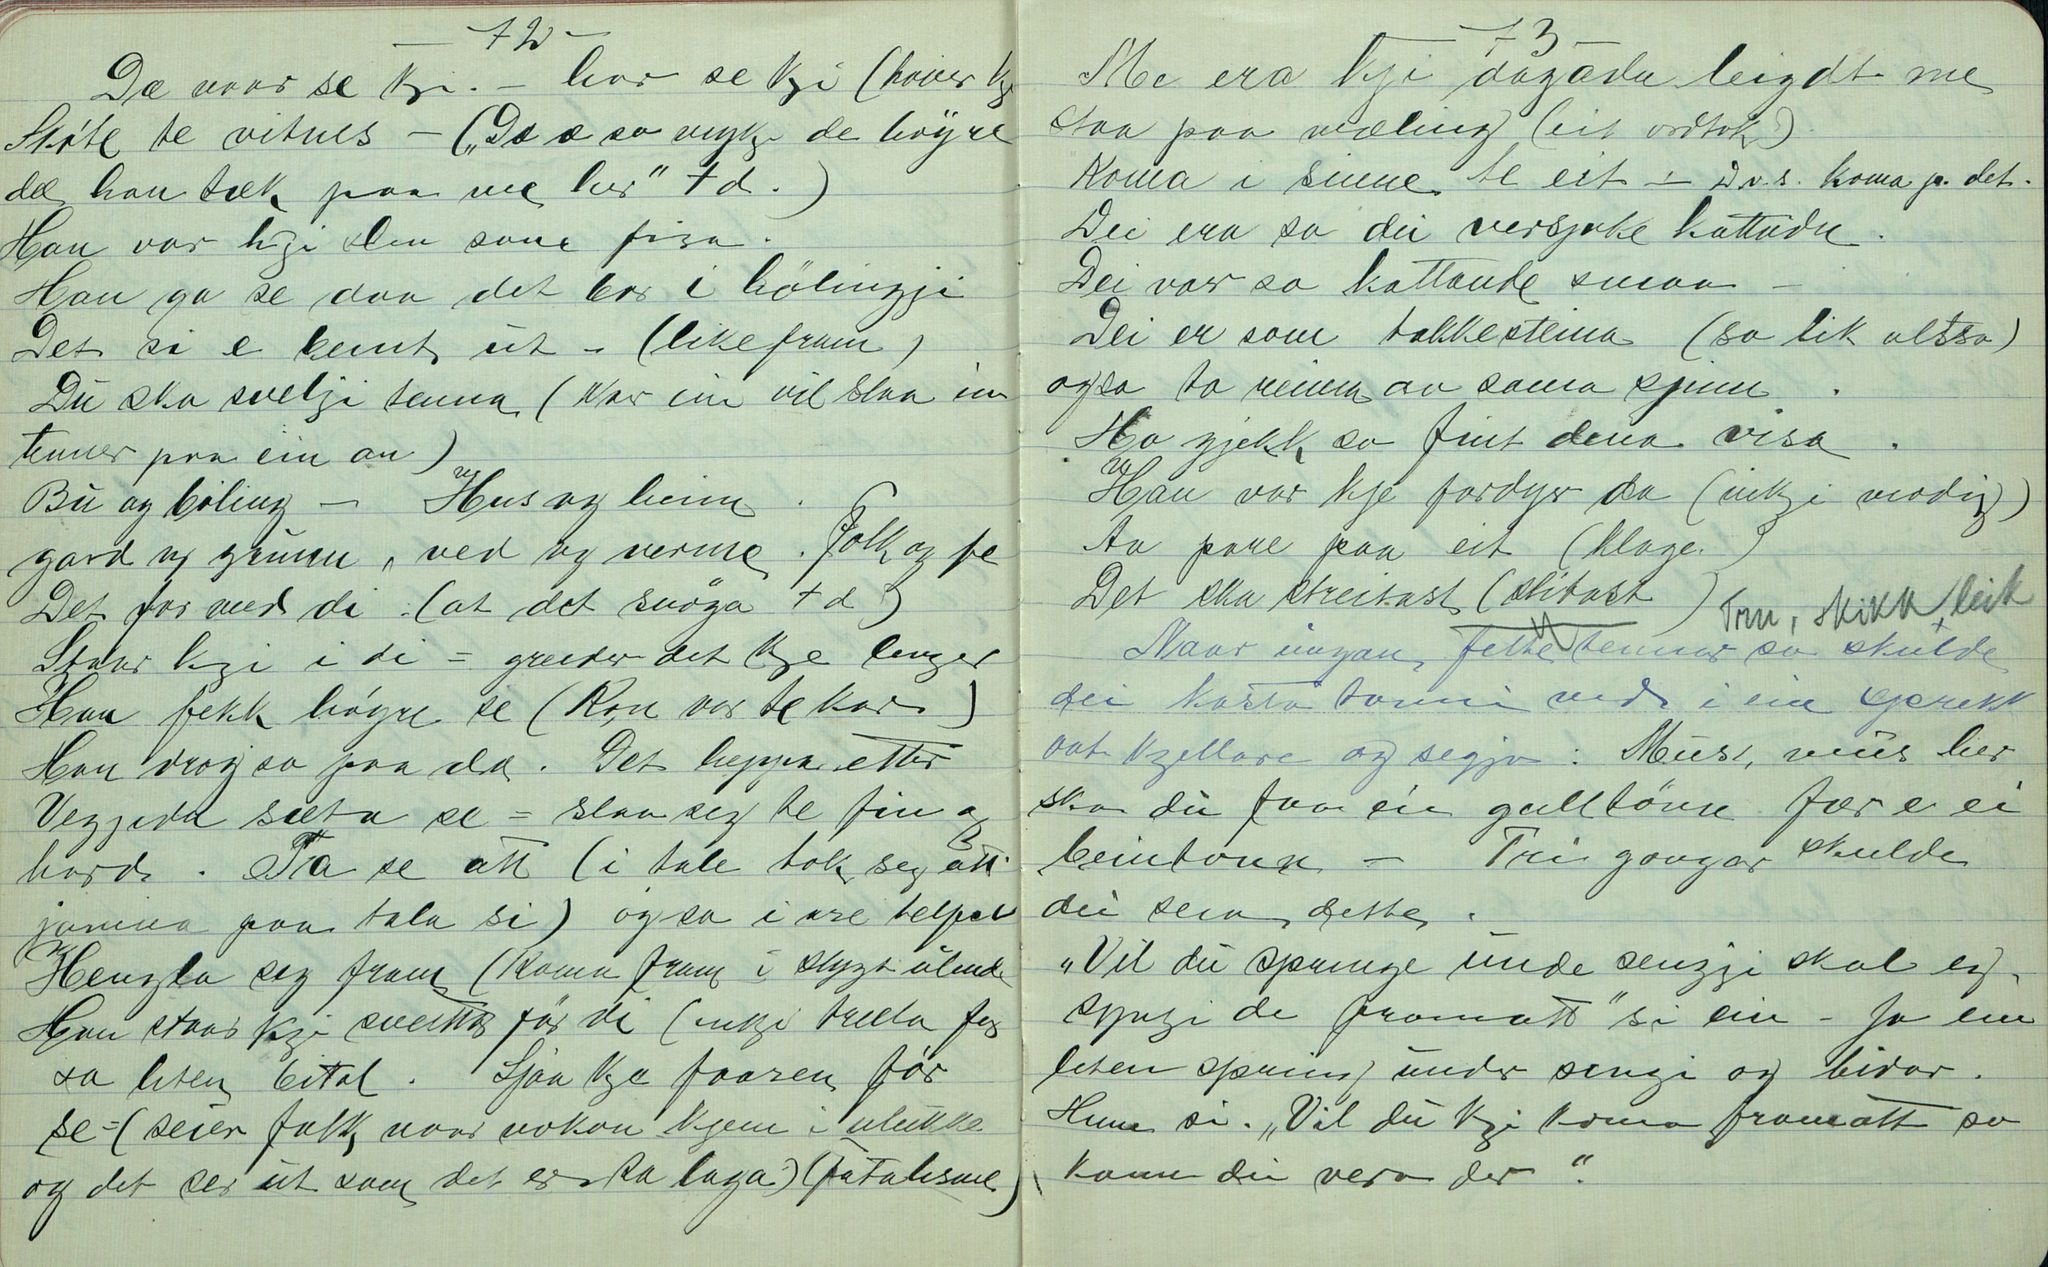 — 72 —
Dæ vaar se kji. — har se kji (høver kje
Skote te vitnes — („Dæ æ so mykje de høyre
dæ han tæk paa me her" t d.)
Han var kji den som fisa.
Han ga se daa det bar i hölingji
Det si e beint ut — (like fram)
Du ska svelgji tenna (Nar ein vil slaa in
tenner paa ein an)
Bu og böling — Hus og heim.
gard og grunn, ved og verme. Folk og fe
Det for med di. (at det snöga t d)
Staar kji i di = greider det kje lenger
Han fekk høyre se (Ron var te kar)
Han drog so paa dæ. Det heppa etter
Veggjida sæta se = slaa seg te fin og
hard. Ta se att (i tale tok seg att
jamna paa tala si) ogso i are telpel
Hengla seg fram (koma fram i stygt ulende
Han staar kji sveitta för di (inkji træla for
so liten bital. Sjaa kje faaren för
se = (seier folk naar nokon kjem i ulukke
og det ser ut som det er so laga) (fatalisme)
— 73 —
Me era kji dagädu leigdt me
staa paa mæling (eit ordtok)
Koma i sinne te eit — d.v.s. koma p. det.
Dei era so dei versjuke kattadn.
Dei var so kattande smaa —
Dei er som takkesteina (so lik altso)
ogso ta reimn av sama spinn.
Ho gjekk so fint dena visa.
Han var kje fordyr da (inkji modig)
Aa pare paa eit (klage)
Det ska streitast (slitast)
Tru, skikk, leik
Naar ungan felte tennar so skulde
dei kasta tonni ned i ein sprekk
aat kjellare og segja: Mus, mus her
ska du faa ein gulltönn fær e ei
beintonn — Tri gongar skulde
dei seia dette.
„Vil du springe unde sengji skal eg
spyrji de framatt" si ein — Ja ein
liten spring under sengi og bidar.
Hinn si. „Vil du kji koma framatt so
kann du vera der".